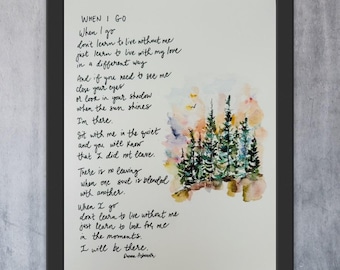 WHEN I GO
When I go
don't learn to live without me
just learn to live with my love
in a different way
And if you need to see me
close your eyes
or look in your shadow
when the sun shines
I'm there.
Sit with me in the quiet
and you will know
that I did not leave.
There is no leaving
when one soul is blended
with another.
When I go
don't learn to live without me
just learn to look for me
in the moments.
I will be there.
Donna Ashworth